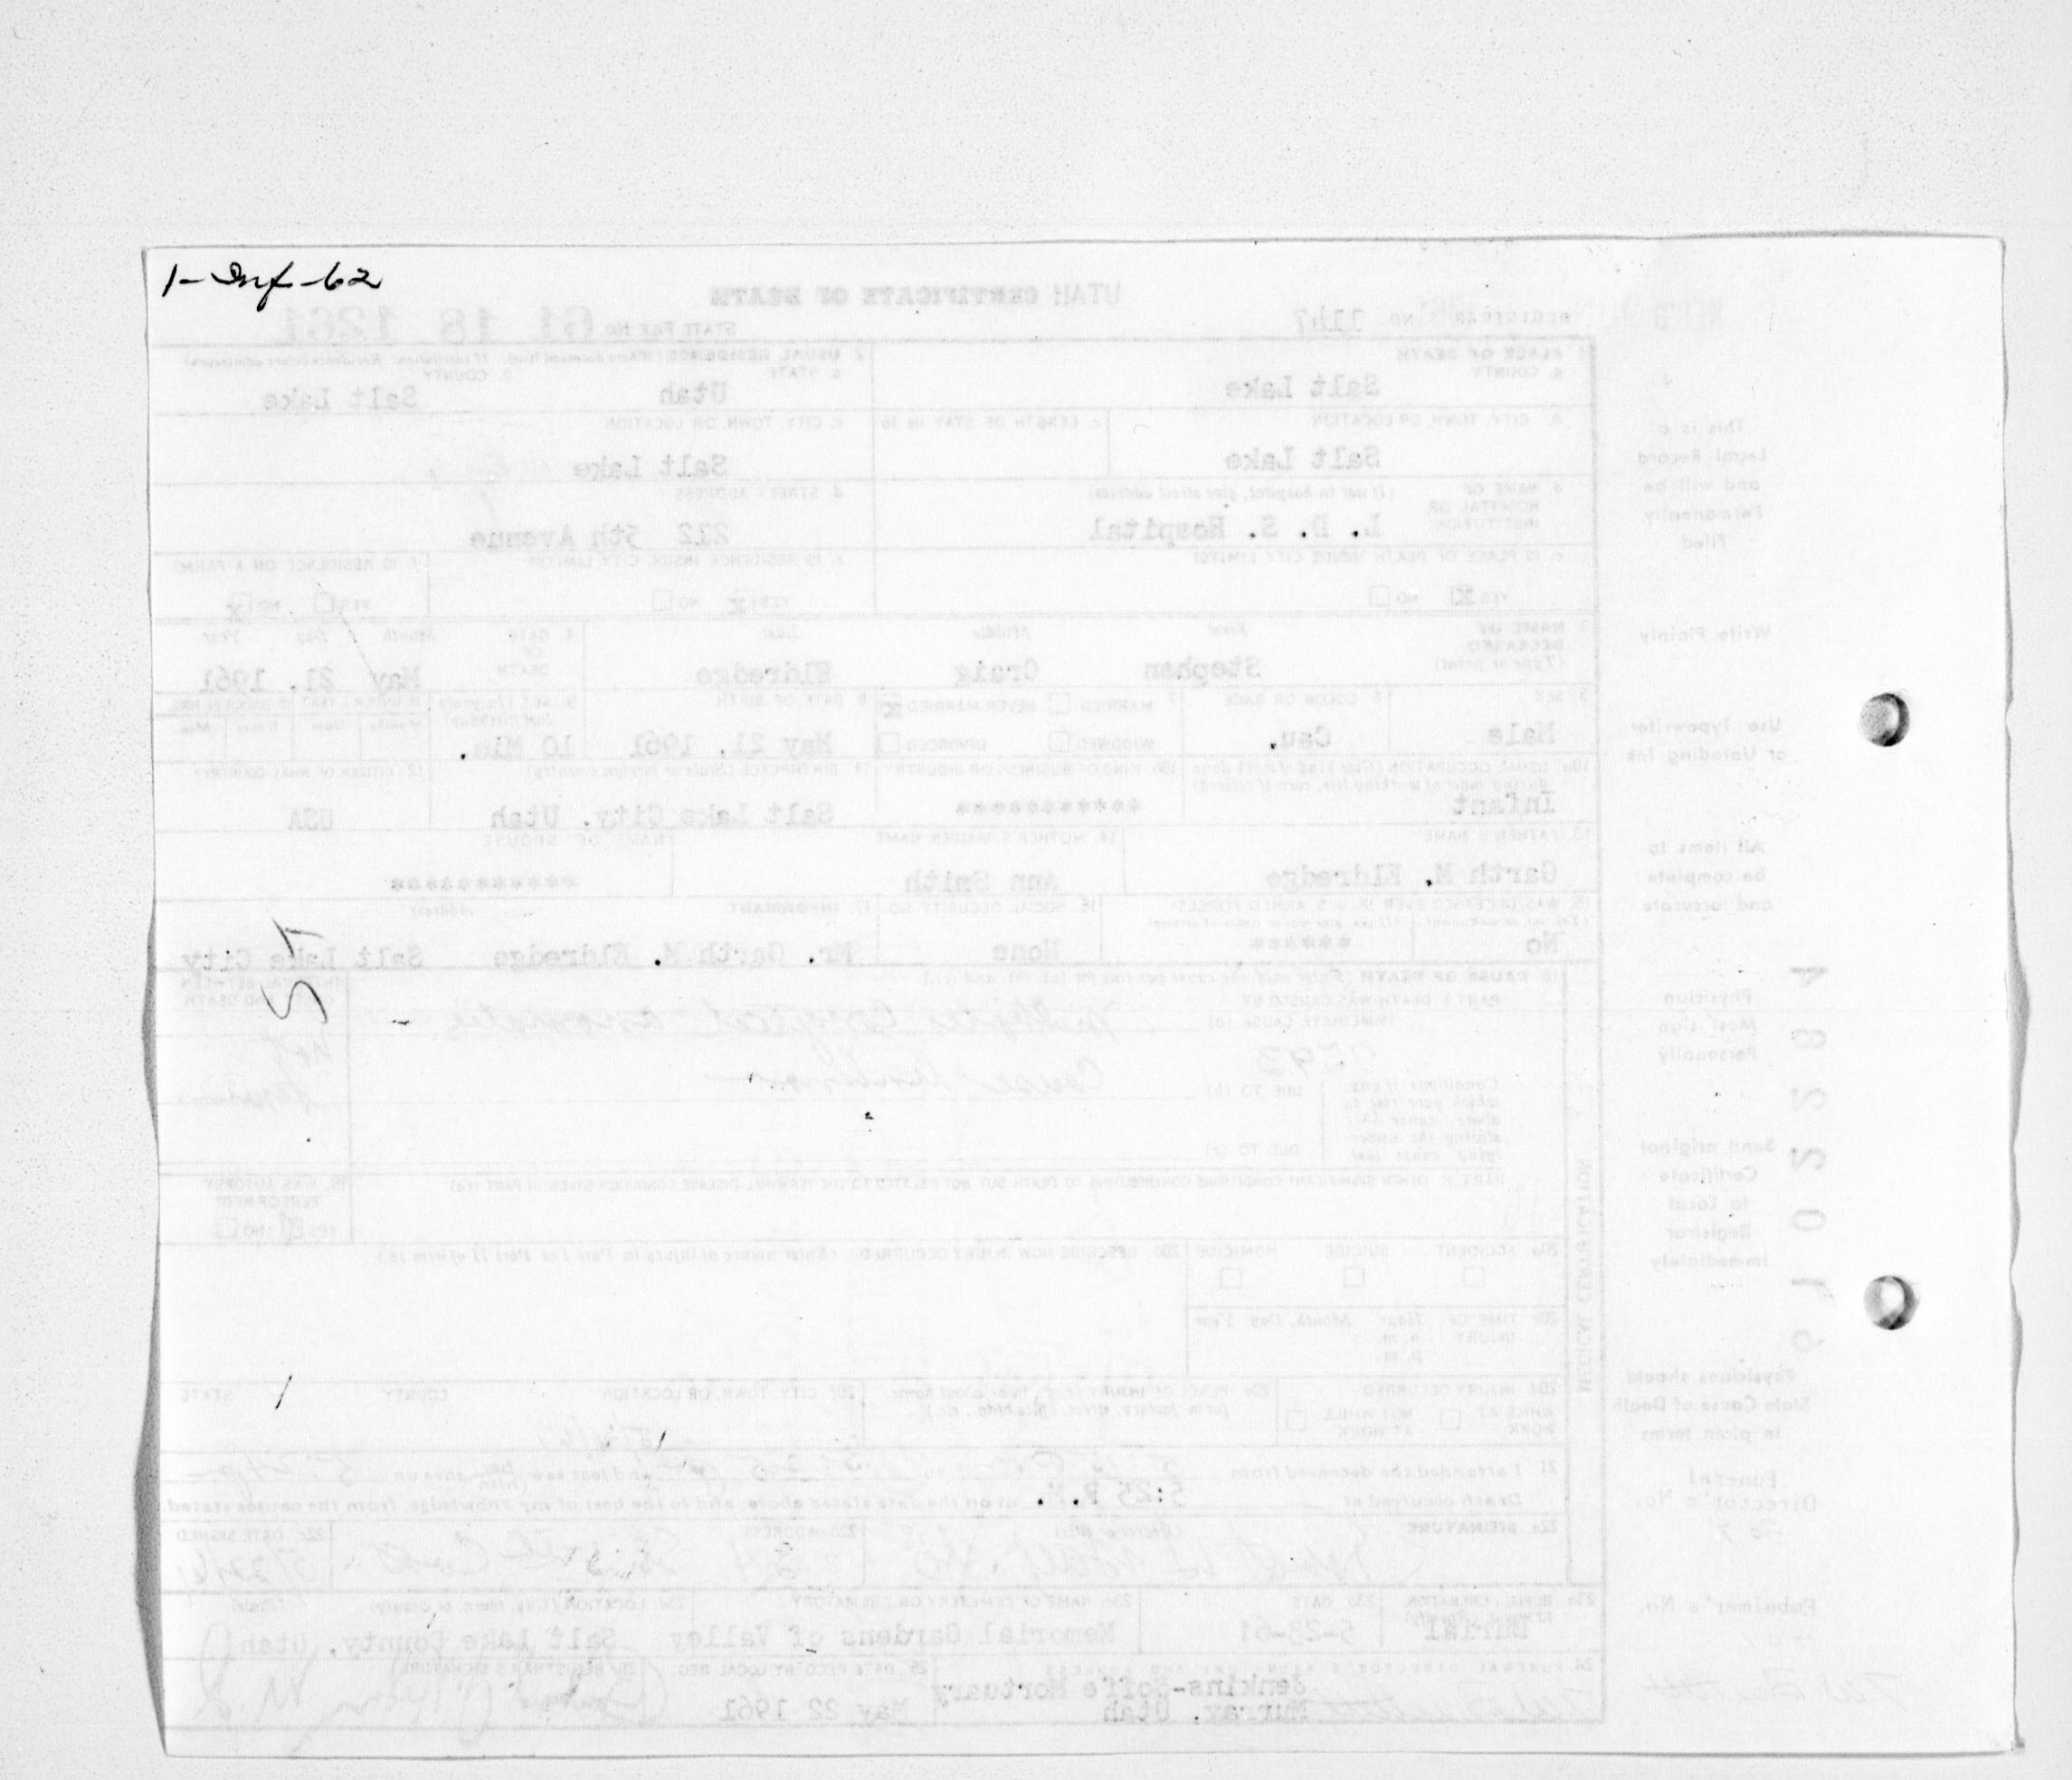 1-Inf-62
UTAH CERTIFICATE OF DEATH
REGISTRAR'S NO. 1147
STATE FILE NO. 61 18 1261
1. PLACE OF DEATH
a. COUNTY
Salt Lake
2. USUAL RESIDENCE (Where deceased lived. If institution: Residence before admission)
a. STATE
Utah
b. COUNTY
Salt Lake
b. CITY, TOWN, OR LOCATION
Salt Lake
c. LENGTH OF STAY IN 1b
c. CITY, TOWN, OR LOCATION
Salt Lake
d. NAME OF HOSPITAL OR INSTITUTION
(If not in hospital, give street address)
L. D. S. Hospital
d. STREET ADDRESS
212 5th Avenue
e. IS PLACE OF DEATH INSIDE CITY LIMITS?
YES X NO
e. IS RESIDENCE INSIDE CITY LIMITS?
YES X NO
f. IS RESIDENCE ON A FARM?
YES NO X
3. NAME OF DECEASED
(Type or print)
First Middle Last
Stephen Craig Eldredge
4. DATE OF DEATH
Month Day Year
May 21, 1961
5. SEX
Male
6. COLOR OR RACE
Cau.
7. MARRIED NEVER MARRIED X
WIDOWED DIVORCED
8. DATE OF BIRTH
May 21, 1961
9. AGE (In years last birthday)
10 Min.
10a. USUAL OCCUPATION (Give kind of work done during most of working life, even if retired)
Infant
10b. KIND OF BUSINESS OR INDUSTRY
***********
11. BIRTHPLACE (State or foreign country)
Salt Lake City, Utah
12. CITIZEN OF WHAT COUNTRY?
USA
13. FATHER'S NAME
Garth M. Eldredge
14. MOTHER'S MAIDEN NAME
Ann Smith
NAME OF SPOUSE
***********
15. WAS DECEASED EVER IN U. S. ARMED FORCES?
No
******
16. SOCIAL SECURITY NO.
None
17. INFORMANT Address
Mr. Garth M. Eldredge Salt Lake City
18. CAUSE OF DEATH (Enter only one cause per line for (a), (b), and (c).)
PART I. DEATH WAS CAUSED BY:
IMMEDIATE CAUSE (a)
INTERVAL BETWEEN ONSET AND DEATH
Conditions, if any, which gave rise to above cause (a), stating the underlying cause last
DUE TO (b)
DUE TO (c)
PART II. OTHER SIGNIFICANT CONDITIONS CONTRIBUTING TO DEATH BUT NOT RELATED TO THE TERMINAL DISEASE CONDITION GIVEN IN PART I(a)
19. WAS AUTOPSY PERFORMED?
YES NO
20a. ACCIDENT SUICIDE HOMICIDE
20b. DESCRIBE HOW INJURY OCCURRED. (Enter nature of injury in Part I or Part II of item 18.)
20c. TIME OF INJURY Hour Month, Day, Year
a. m.
p. m.
20d. INJURY OCCURRED
WHILE AT WORK NOT WHILE AT WORK
20e. PLACE OF INJURY (e.g., in or about home, farm, factory, street, office bldg., etc.)
20f. CITY, TOWN, OR LOCATION COUNTY STATE
21. I attended the deceased from
to
and last saw her him alive on
Death occurred at 5:25 P.M. on the date stated above, and to the best of my knowledge, from the causes stated.
22a. SIGNATURE (Degree or title)
22b. ADDRESS
22c. DATE SIGNED
5/22/61
23a. BURIAL, CREMATION, REMOVAL (Specify)
Burial
23b. DATE
5-23-61
23c. NAME OF CEMETERY OR CREMATORY
Memorial Gardens of Valley
23d. LOCATION (City, town, or county) (State)
Salt Lake County, Utah
24. FUNERAL DIRECTOR'S SIGNATURE AND ADDRESS
Jenkins-Soffe Mortuary
Murray, Utah
25. DATE RECD. BY LOCAL REG.
May 22 1961
26. REGISTRAR'S SIGNATURE
MEDICAL CERTIFICATION
This is a
Legal Record
and will be
Permanently
Filed
Write Plainly
Use Typewriter
or Unfading Ink
All items to
be complete
and accurate
Physician
Must sign
Personally
Send original
Certificate
to Local
Registrar
immediately
Physicians should
State Cause of Death
in plain terms
Funeral
Director's No.
Embalmer's No.